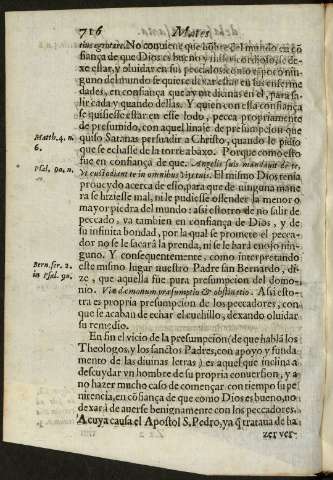 716 Martes
tius egritate. No conuiene que hõbre del mundo en cõ
fiança de que Dios es bueno y misericordioso, se de-
xe estar, y oluidar en sus peccados: como
guno del mundo se quiere dexar estar en sus enferme
dades, en confiança que ay medicinas en el, para sa-
lir cada y quando dellas. Y quien con esta confiança
se quisiesse estar en esse lodo, pecca propriamente
de presumido, con aquel linaje de presumpcion que
quiso Satanas persuadir a Christo, quando le pidio
Matth. 4. n.
6.
que se echasse de la torre abaxo. Porque como esto
fue en confiança de que. Angelis suis mandauit de te,
Psal. 90. n.
vt custodient te in omnibus vijs tuis. El mismo Dios tenia
proueydo acerca de esso, para que de ninguna mane
ra se hiziesse mal, ni le pudiesse offender la menor o
mayor piedra del mundo: assi estorro de no salir de
peccado, va tambien en confiança de Dios, y de
su infinita bondad, por la qual se promete el pecca-
dor no se le sacarà la prenda, ni se le harà enojo nin-
guno. Y consequentemente, como interpretando
Bern. ser. 2.
in Psal. 90.
este mismo lugar nuestro Padre san Bernardo, di-
ze, que aquella fue pura presumpcion del domo-
nio. Via dæmonum præsumptio & obstinatio. Assi esto-
tra es propria presumpcion de los peccadores, con
que le acaban de echar el cuchillo, dexando oluidar
su remedio.
En fin el vicio de la presumpcion (de que habla los
Theologos, y los sanctos Padres, con apoyo y funda
mento de las diuinas letras) es aquel que inclina a
descuydar vn hombre de su propria conuersion, y a
no hazer mucho caso de començar con tiempo su pe
nitencia, en cõfiança de que como Dios es bueno, no
dexará de auerse benignamente con los peccadores.
A cuya causa el Apostol S. Pedro, ya q̃ trataua de ha
zer ver-